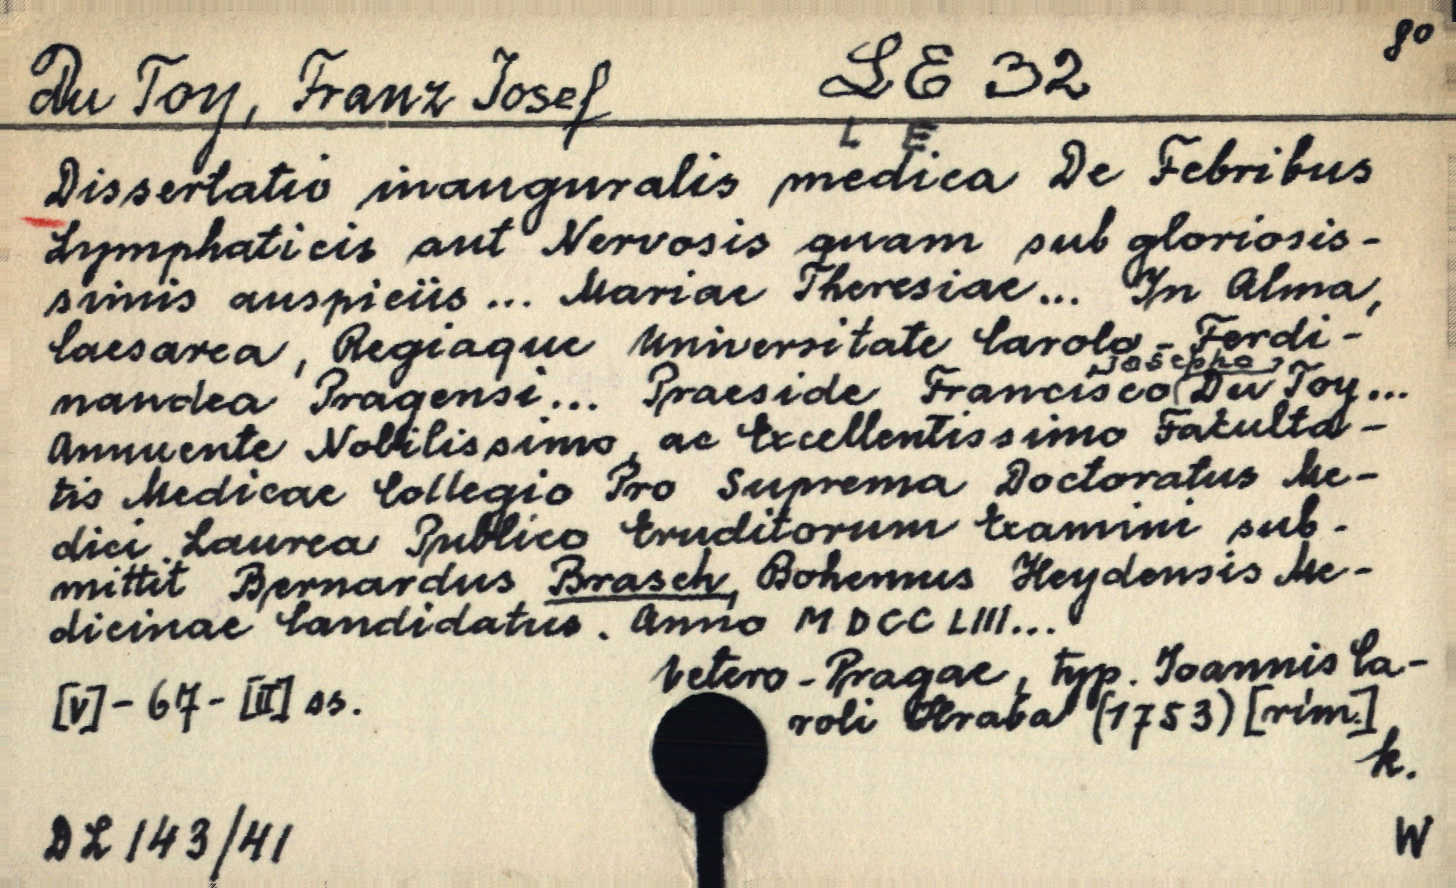 Du Toy, Franz Josef LE 32 8°
L E
Dissertatio inauguralis medica De Febribus
Lymphaticis aut Nervosis quam sub gloriosis-
simis auspiciis ... Mariae Theresiae ... In Alma,
Caesarea, Regiaque Universitate Carolo - Ferdi-
nandea Pragensi ... Praeside Francisco Josepho Du Toy ...
Annuente Nobilissimo, ac Excellentissimo Faculta-
tis Medicae Collegio Pro Suprema Doctoratus Me-
dici Laurea Publico Eruditorum Examini sub-
mittit Bernardus Brasch, Bohemus Heydensis Me-
dicinae Candidatus. Anno MDCCLIII...
Vetero - Pragae, typ. Joannis Ca-
[V] - 67 - [II] ss. roli Hraba (1753) [rím.]
k.
DL 143/41 W